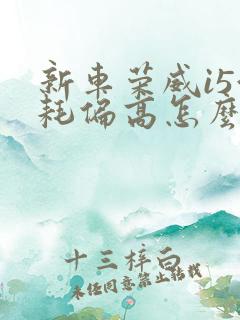 新車荣威i5
耗偏高怎麼
十三梓白
未经同意禁止转载